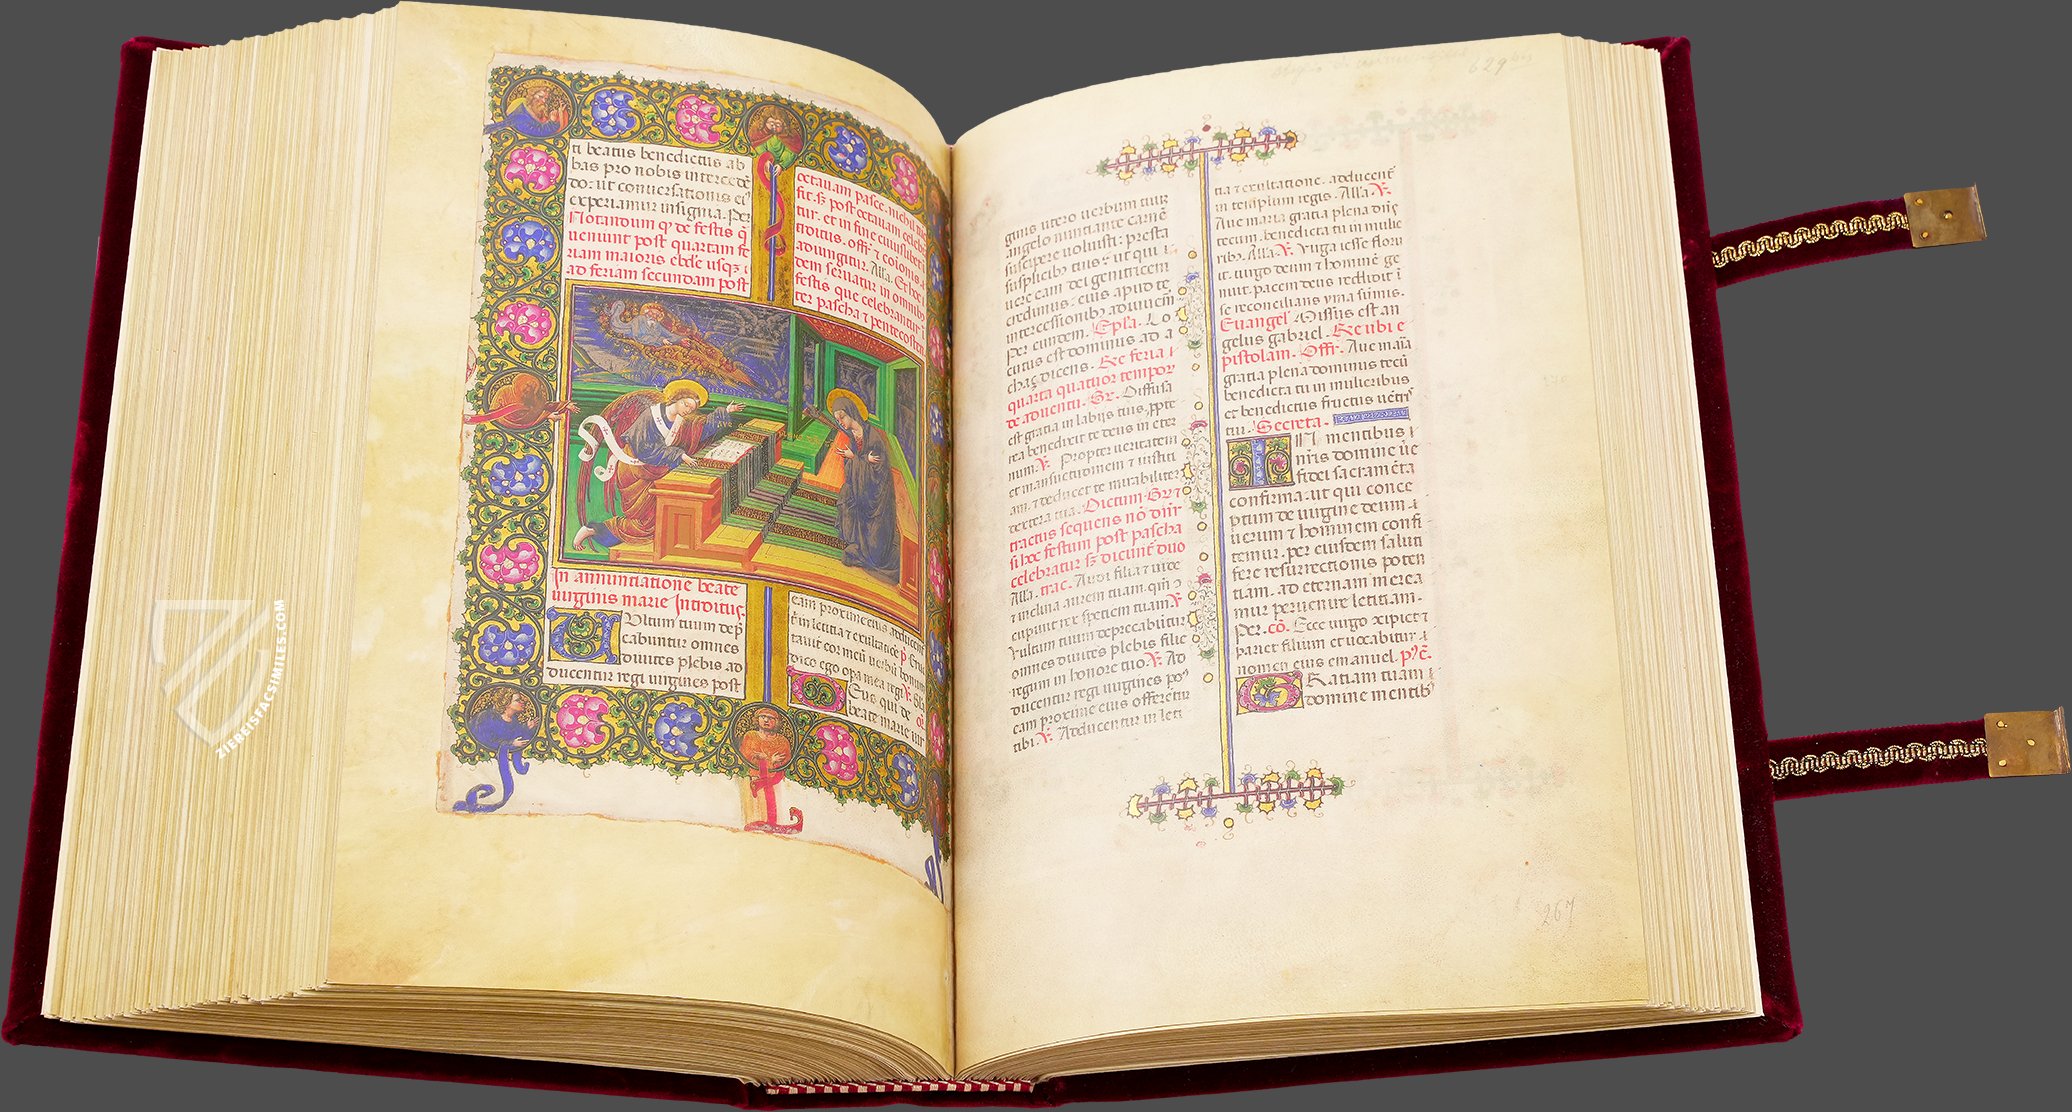 ti beatus benedictus ab
bas pro nobis intercedē
do: ut conuersationis ei⁹
experiamur insignia. Per
Notandum q̄ de festis q̄
ueniunt post quartam fe
riam maioris ebde usqȝ
ad feriam secundam post
octauam pasce. nichil
fit. sȝ post octauam celeb
tur. et in fine cuiuslibet
troitus. offr̄ et
adiungitur. Alla. Et hoc
dem seruatur in omnibus
festis que celebrantur ī
ter pascha et pentecosten
In annuntiatione beate
uirginis marie Introitus.
Vltum tuum dep̄
cabuntur omnes
diuites plebis ad
ducentur regi uirgines post
eam proxime eius adducent
in letitia et exultatione
tauit cor meū uerbū bonum
dico ego opa mea regi
Eus qui de
beate marie uir
629 bis
ginis utero uerbum tuum
angelo nuntiante carnē
suscipere uoluisti: presta
supplicibȝ tuis: ut qui
uere eam dei genitricem
credimus: eius apud te
intercessionibȝ adiuuemur
Per eundem. Epła. Lo
cutus est dominus ad a
chaȝ dicens. Re feria
quarta quatuor tempor
de aduentu. Gr. Diffusa
est gratia in labiis tuis. ꝓpte
rea benedixit te deus in eter
num. ℣. Propter ueritatem
et mansuetudinem et iustiti
am. et deducet te mirabiliter
dextera tua. Dictum Gr et
tractus sequens nō dicit
si hoc festum post pascha
celebratur sȝ dicunt duo
Alla. trac. Audi filia et uide
et inclina aurem tuam. quia
cupiuit rex speciem tuam ℣.
Vultum tuum deprecabūtur
omnes diuites plebis filie
regum in honore tuo. ℣. Ad
ducentur regi uirgines po
eam proxime eius offerētur
tibi. ℣. Adducentur in leti
tia et exultatione. adducent̄
in templum regis. Alla. ℣.
Aue maria gratia plena dn̄s
tecum. benedicta tu in mulie
ribȝ. Alla. ℣. Virga iesse floru
it. uirgo deum et hominē ge
nuit. pacem deus reddidit ī
se reconcilians yma summis.
Euangel. Missus est an
gelus gabriel. Re ubi e
pistolam. Offr. Aue maria
gratia plena dominus tecū
benedicta tu in mulieribus
et benedictus fructus uētris
tui. Secreta.
IN mentibus
nr̄is domine ue
re fidei sacramēta
confirma. ut qui conce
ptum de uirgine deum
uerum et hominem confi
temur. per eiusdem saluti
fere resurrectionis poten
tiam. ad eternam merea
mur peruenire letitiam.
Per. cō. Ecce uirgo ↄcipiet et
pariet filium et uocabitur
nomen eius emanuel. p̄ c̄.
GRatiam tuam
domine mentibȝ
267
ZIEREISFACSIMILES.COM